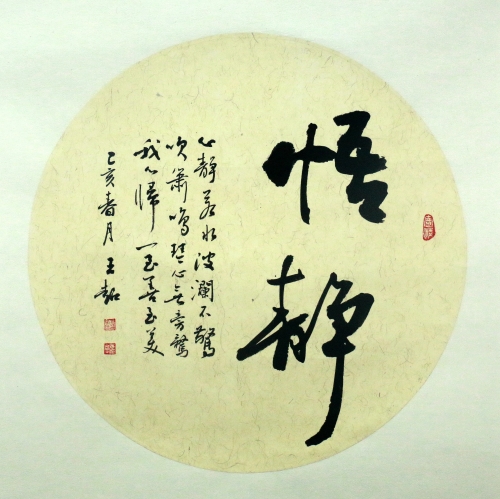 悟静
心静若水波瀾不驚
吹萧鸣琴心无旁騖
我心歸一至善至美
己亥春月 王